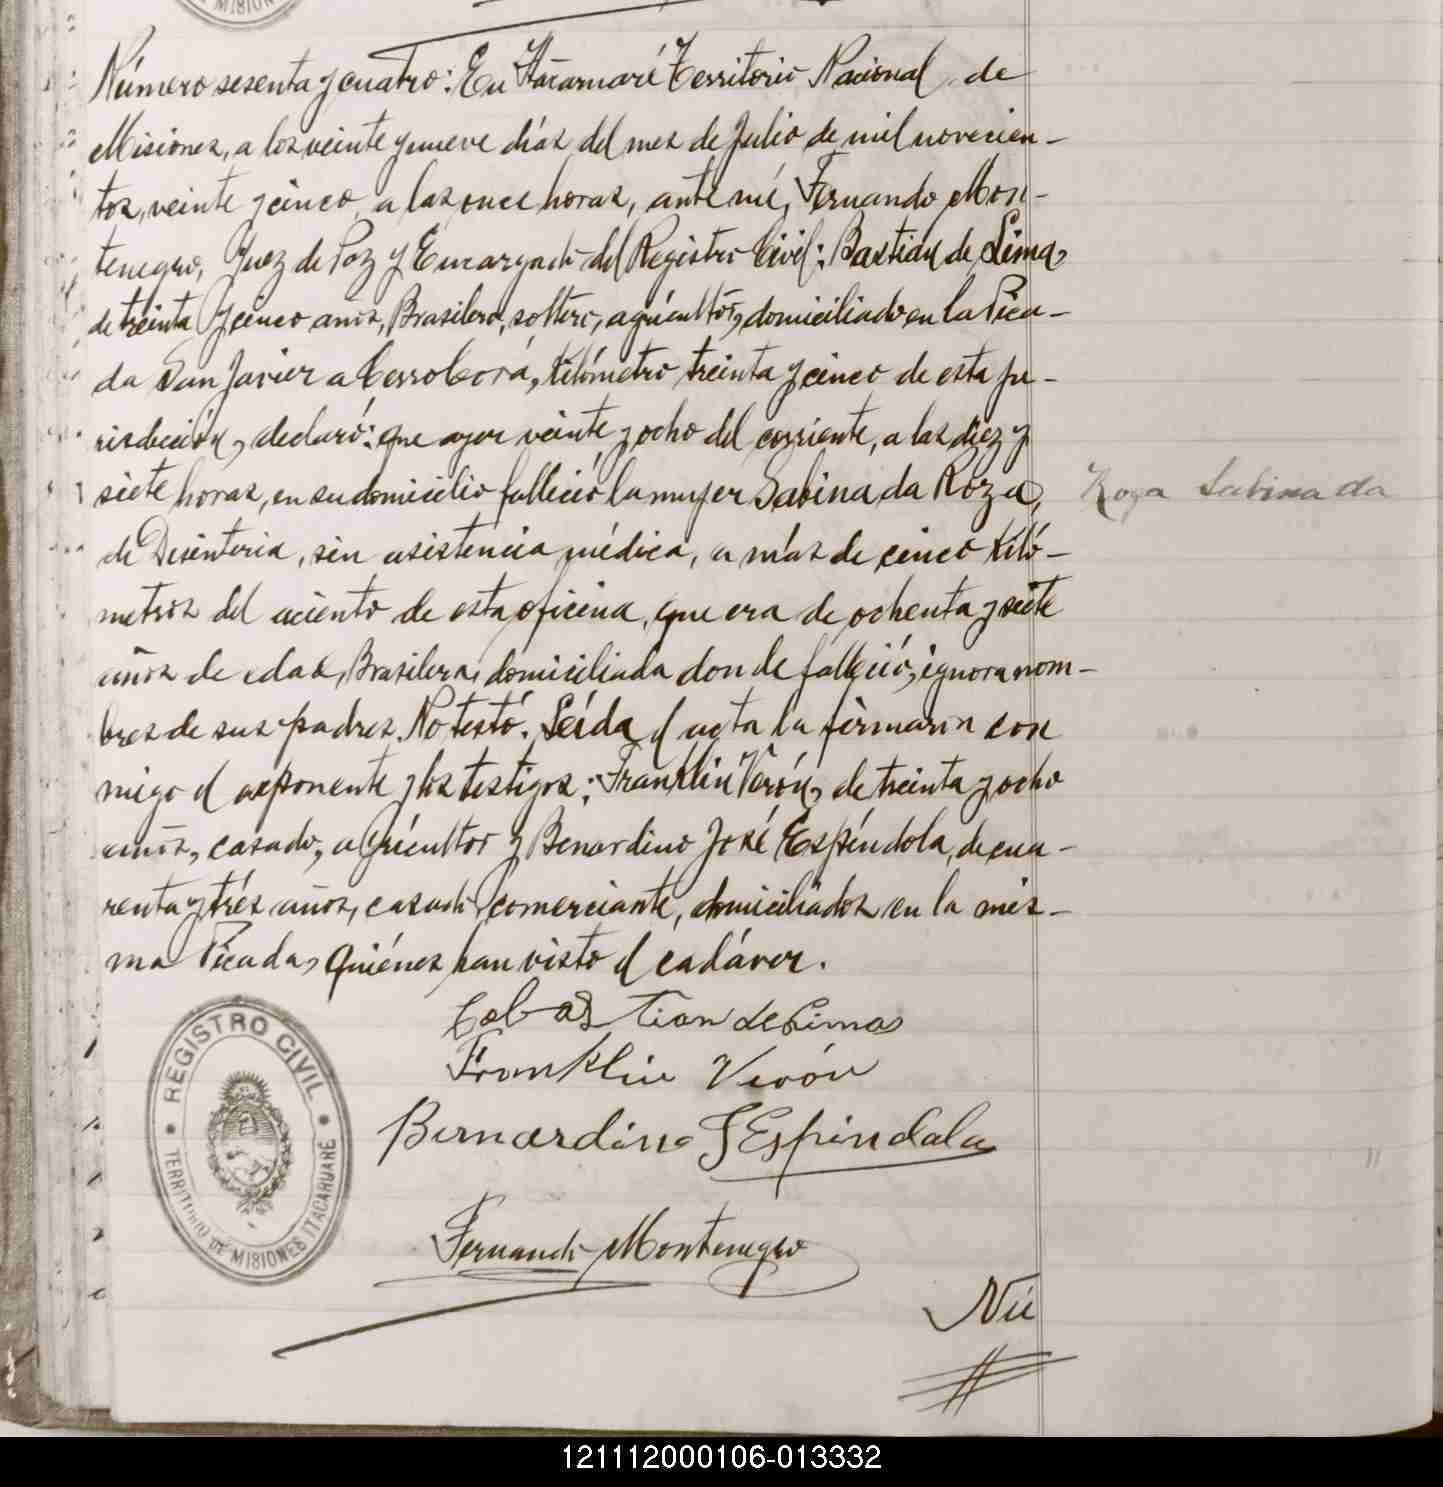 Número sesenta y cuatro: En Itacaruaré Territorio Nacional de
Misiones, a los veinte y nueve días del mes de Julio de mil novecien-
tos, veinte y cinco, a las once horas, ante mí, Fernando Mon-
tenegro, Juez de Paz y Encargado del Registro Civil: Bastian de Lima,
de treinta y cinco años, Brasilero, soltero, agricultor, domiciliado en la Pica-
da San Javier a Cerro Corá, Kilómetro treinta y cinco de esta ju-
risdicción, declaró: que ayer veinte y ocho del corriente, a las diez y
siete horas, en su domicilio falleció la mujer Sabina da Roza,
de Disenteria, sin asistencia médica, a más de cinco Kiló-
metros del aciento de esta oficina, que era de ochenta y siete
años de edad, Brasilera, domiciliada donde falleció, ignora nom-
bres de sus padres. No testó. Leída el acta la firmaron con
migo el exponente y los testigos: Franklin Verón, de treinta y ocho
años, casado, agricultor y Bernardino José Espíndola, de cua-
renta y trés años, casado, comerciante, domiciliados en la mis-
ma Picada, quiénes han visto el cadáver.
Roza Sabina da
Sebastian de Lima
Franklin Verón
Bernardino J Espindola
Fernando Montenegro
Nú
REGISTRO CIVIL
TERRITORIO DE MISIONES ITACARUARE
121112000106-013332